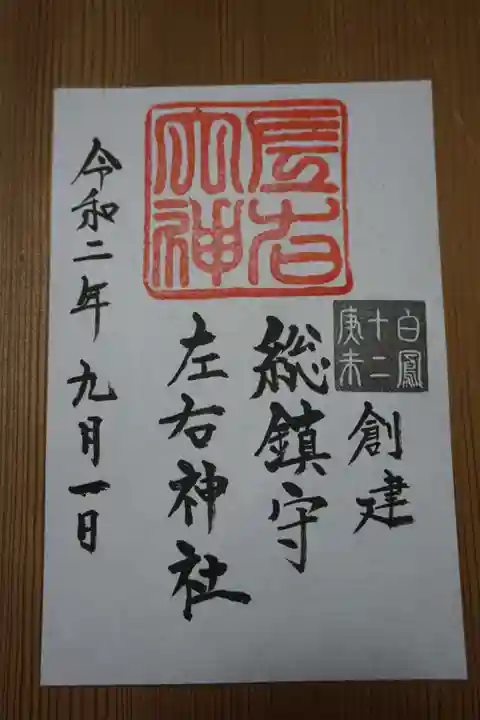 白鳳
十二
庚未
創建
総鎮守
左右大神
左右神社
令和二年九月一日